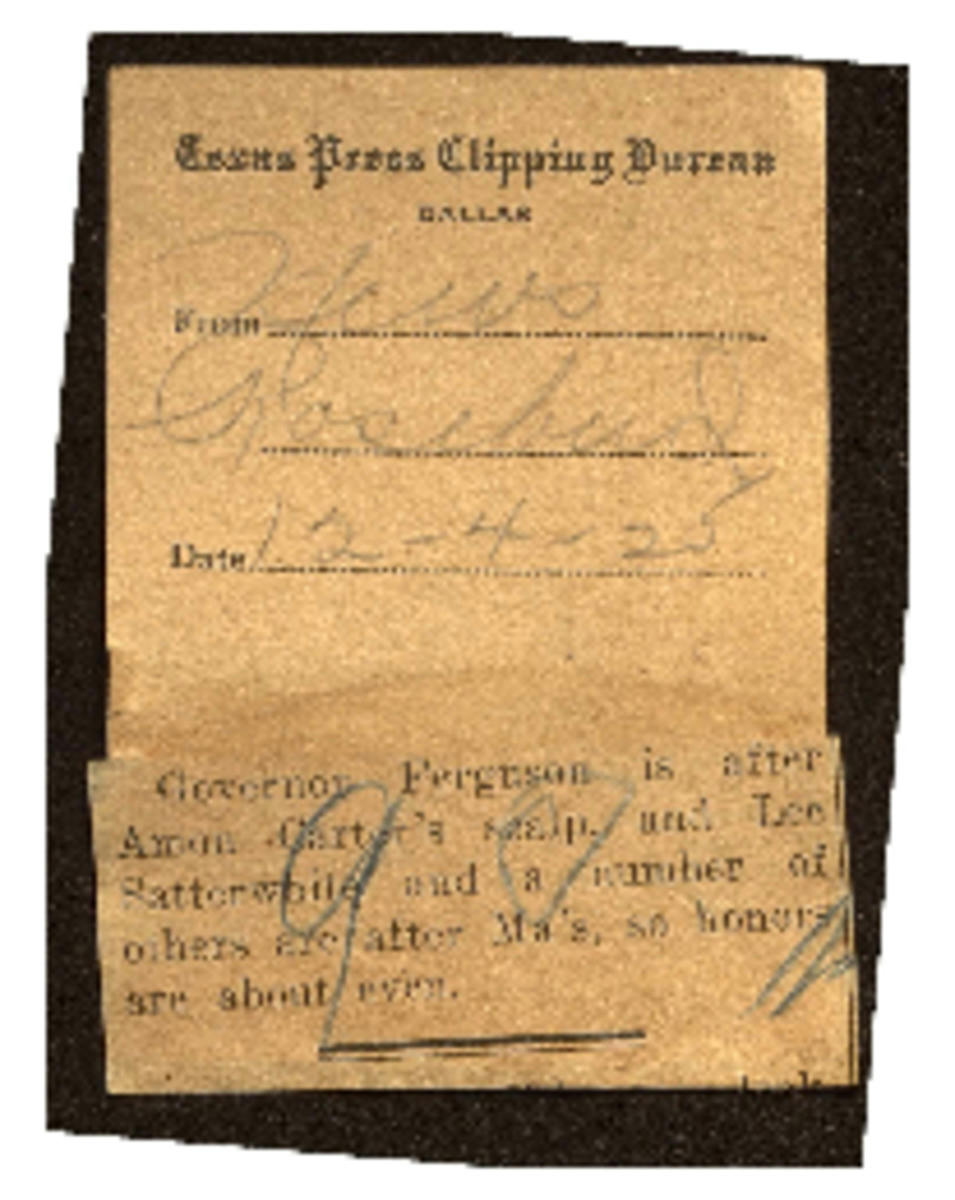 Texas Press Clipping Bureau
DALLAS
From News
Rosebud
Date 12-4-25
Governor Ferguson is after
Amon Carter's scalp, and Lee
Satterwhite and a number of
others are after Ma's, so honors
are about even.